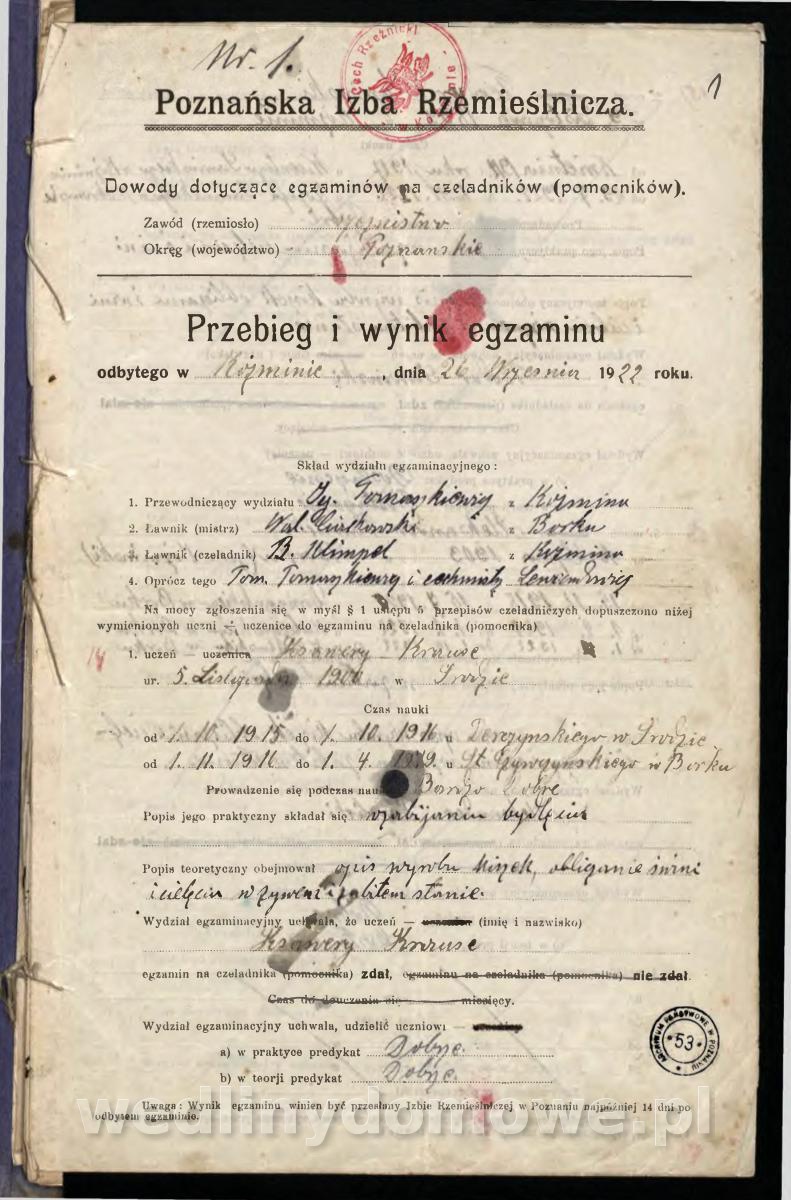 Nr. 1.
1
Cech Rzeźnicki
w Koźminie
Poznańska Izba Rzemieślnicza.
Dowody dotyczące egzaminów na czeladników (pomocników).
Zawód (rzemiosło)
Okręg (województwo) Poznanskie
Przebieg i wynik egzaminu
odbytego w Koźminie, dnia 26 Wrzesnia 1922 roku.
Skład wydziału egzaminacyjnego:
1. Przewodniczący wydziału Ig. Tomaszkiewicz z Koźmina
2. Ławnik (mistrz) Wal. z Borku
3. Ławnik (czeladnik) B. Klimpel z Koźmina
4. Oprócz tego Tom. Tomaszkiewicz i cechmistrz
Na mocy zgłoszenia się w myśl § 1 ustępu 5 przepisów czeladniczych dopuszczono niżej
wymienionych uczni — uczenice do egzaminu na czeladnika (pomocnika)
1. uczeń — uczenica Ksawery Krause
ur. 5. Listopada 1900 w Srodzie
Czas nauki
od 1. 10 1915 do 1. 10. 1916 u w Srodzie
od 1. 11. 1916 do 1. 4. 1919. u St. w Borku
Prowadzenie się podczas nauki Bardzo Dobre
Popis jego praktyczny składał się w zabijaniu bydlęcia
Popis teoretyczny obejmował opis wyrobu kiszek, obliganie świni
i cielęcia w żywem i zabitem stanie.
Wydział egzaminacyjny uchwala, że uczeń — uczenica (imię i nazwisko)
Ksawery Krause
egzamin na czeladnika (pomocnika) zdał, egzaminu na czeladnika (pomocnika) nie zdał.
Czas do douczenia się miesięcy.
Wydział egzaminacyjny uchwala, udzielić uczniowi — uczenicy
a) w praktyce predykat Dobrze.
b) w teorji predykat Dobrze.
ARCHIWUM PAŃSTWOWE W POZNANIU
53
Uwaga: Wynik egzaminu winien być przesłany Izbie Rzemieślniczej w Poznaniu najpóźniej 14 dni po
odbytem egzaminie.
wedlinydomowe.pl